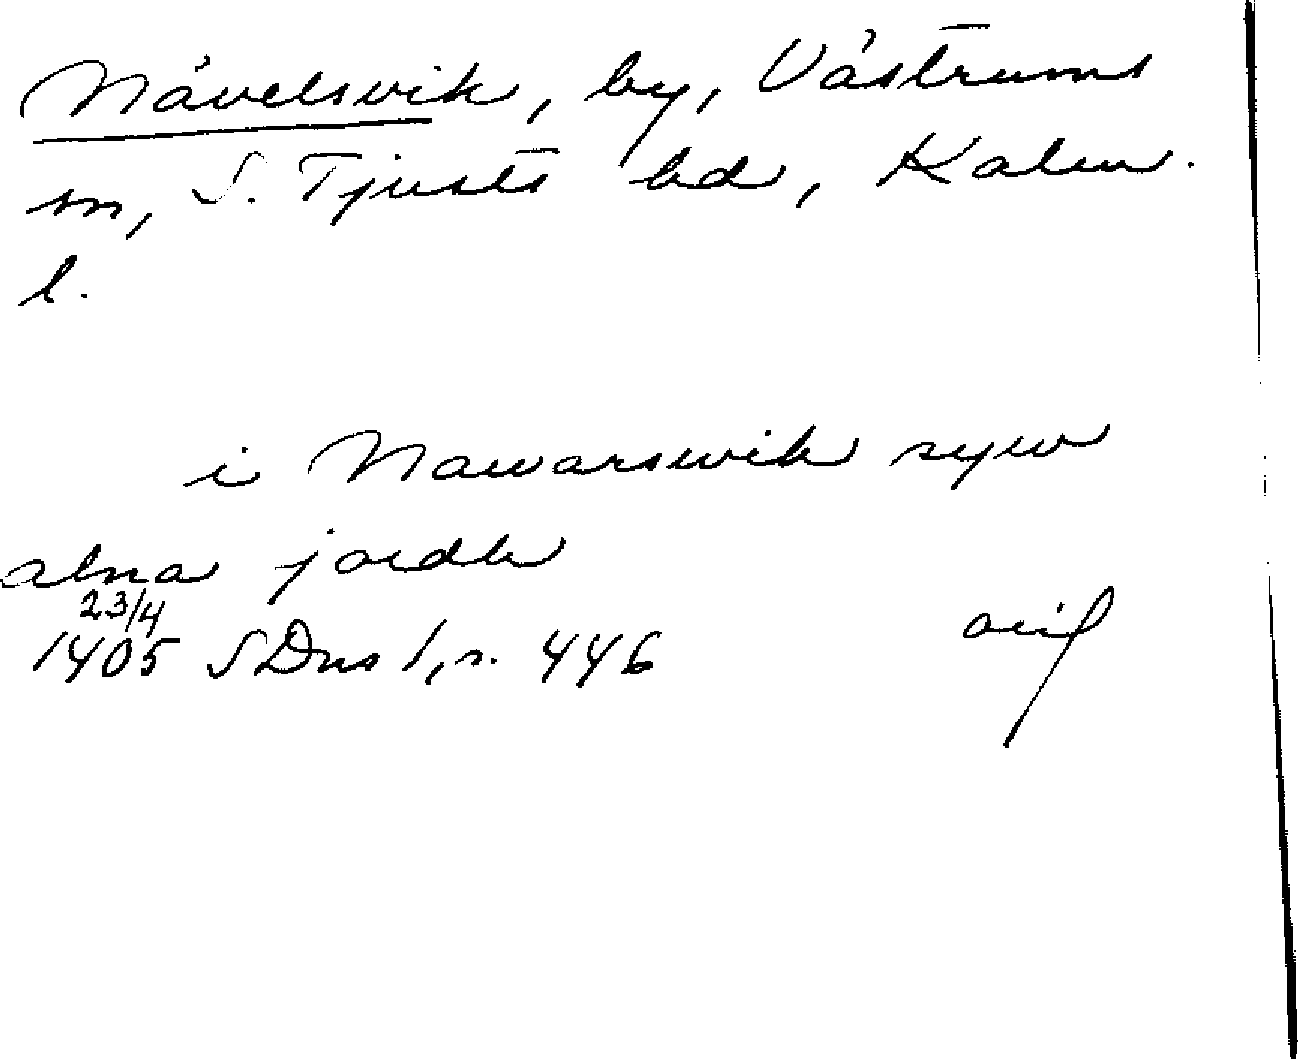 Nävelsvik, by, Västrums
sn, S. Tjusts hd, Kalm.
l.
i Nawarswik syw
alna jordh
23/4
1405 SDns 1, s. 446 orig